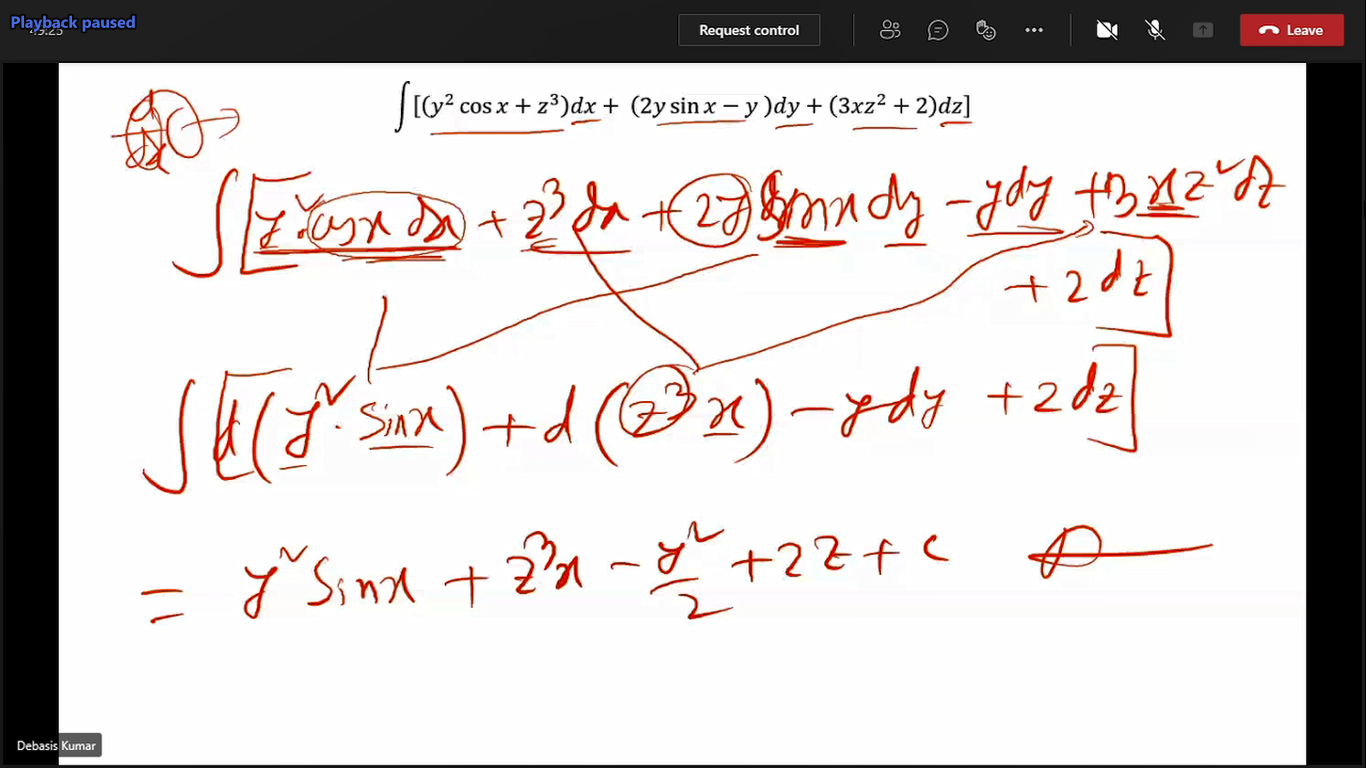 Playback paused
49:25
Request control
Leave
∫[(y² cos x + z³)dx + (2y sin x − y )dy + (3xz² + 2)dz]
d
dx
∫[y² · cosx dx + z³ dx + 2y sinx dy − ydy + 3 xz² dz
+ 2 dz]
∫[d(y² · sinx) + d(z³ x) − ydy + 2 dz]
= y² Sinx + z³x − y²/2 + 2z + c
Debasis Kumar